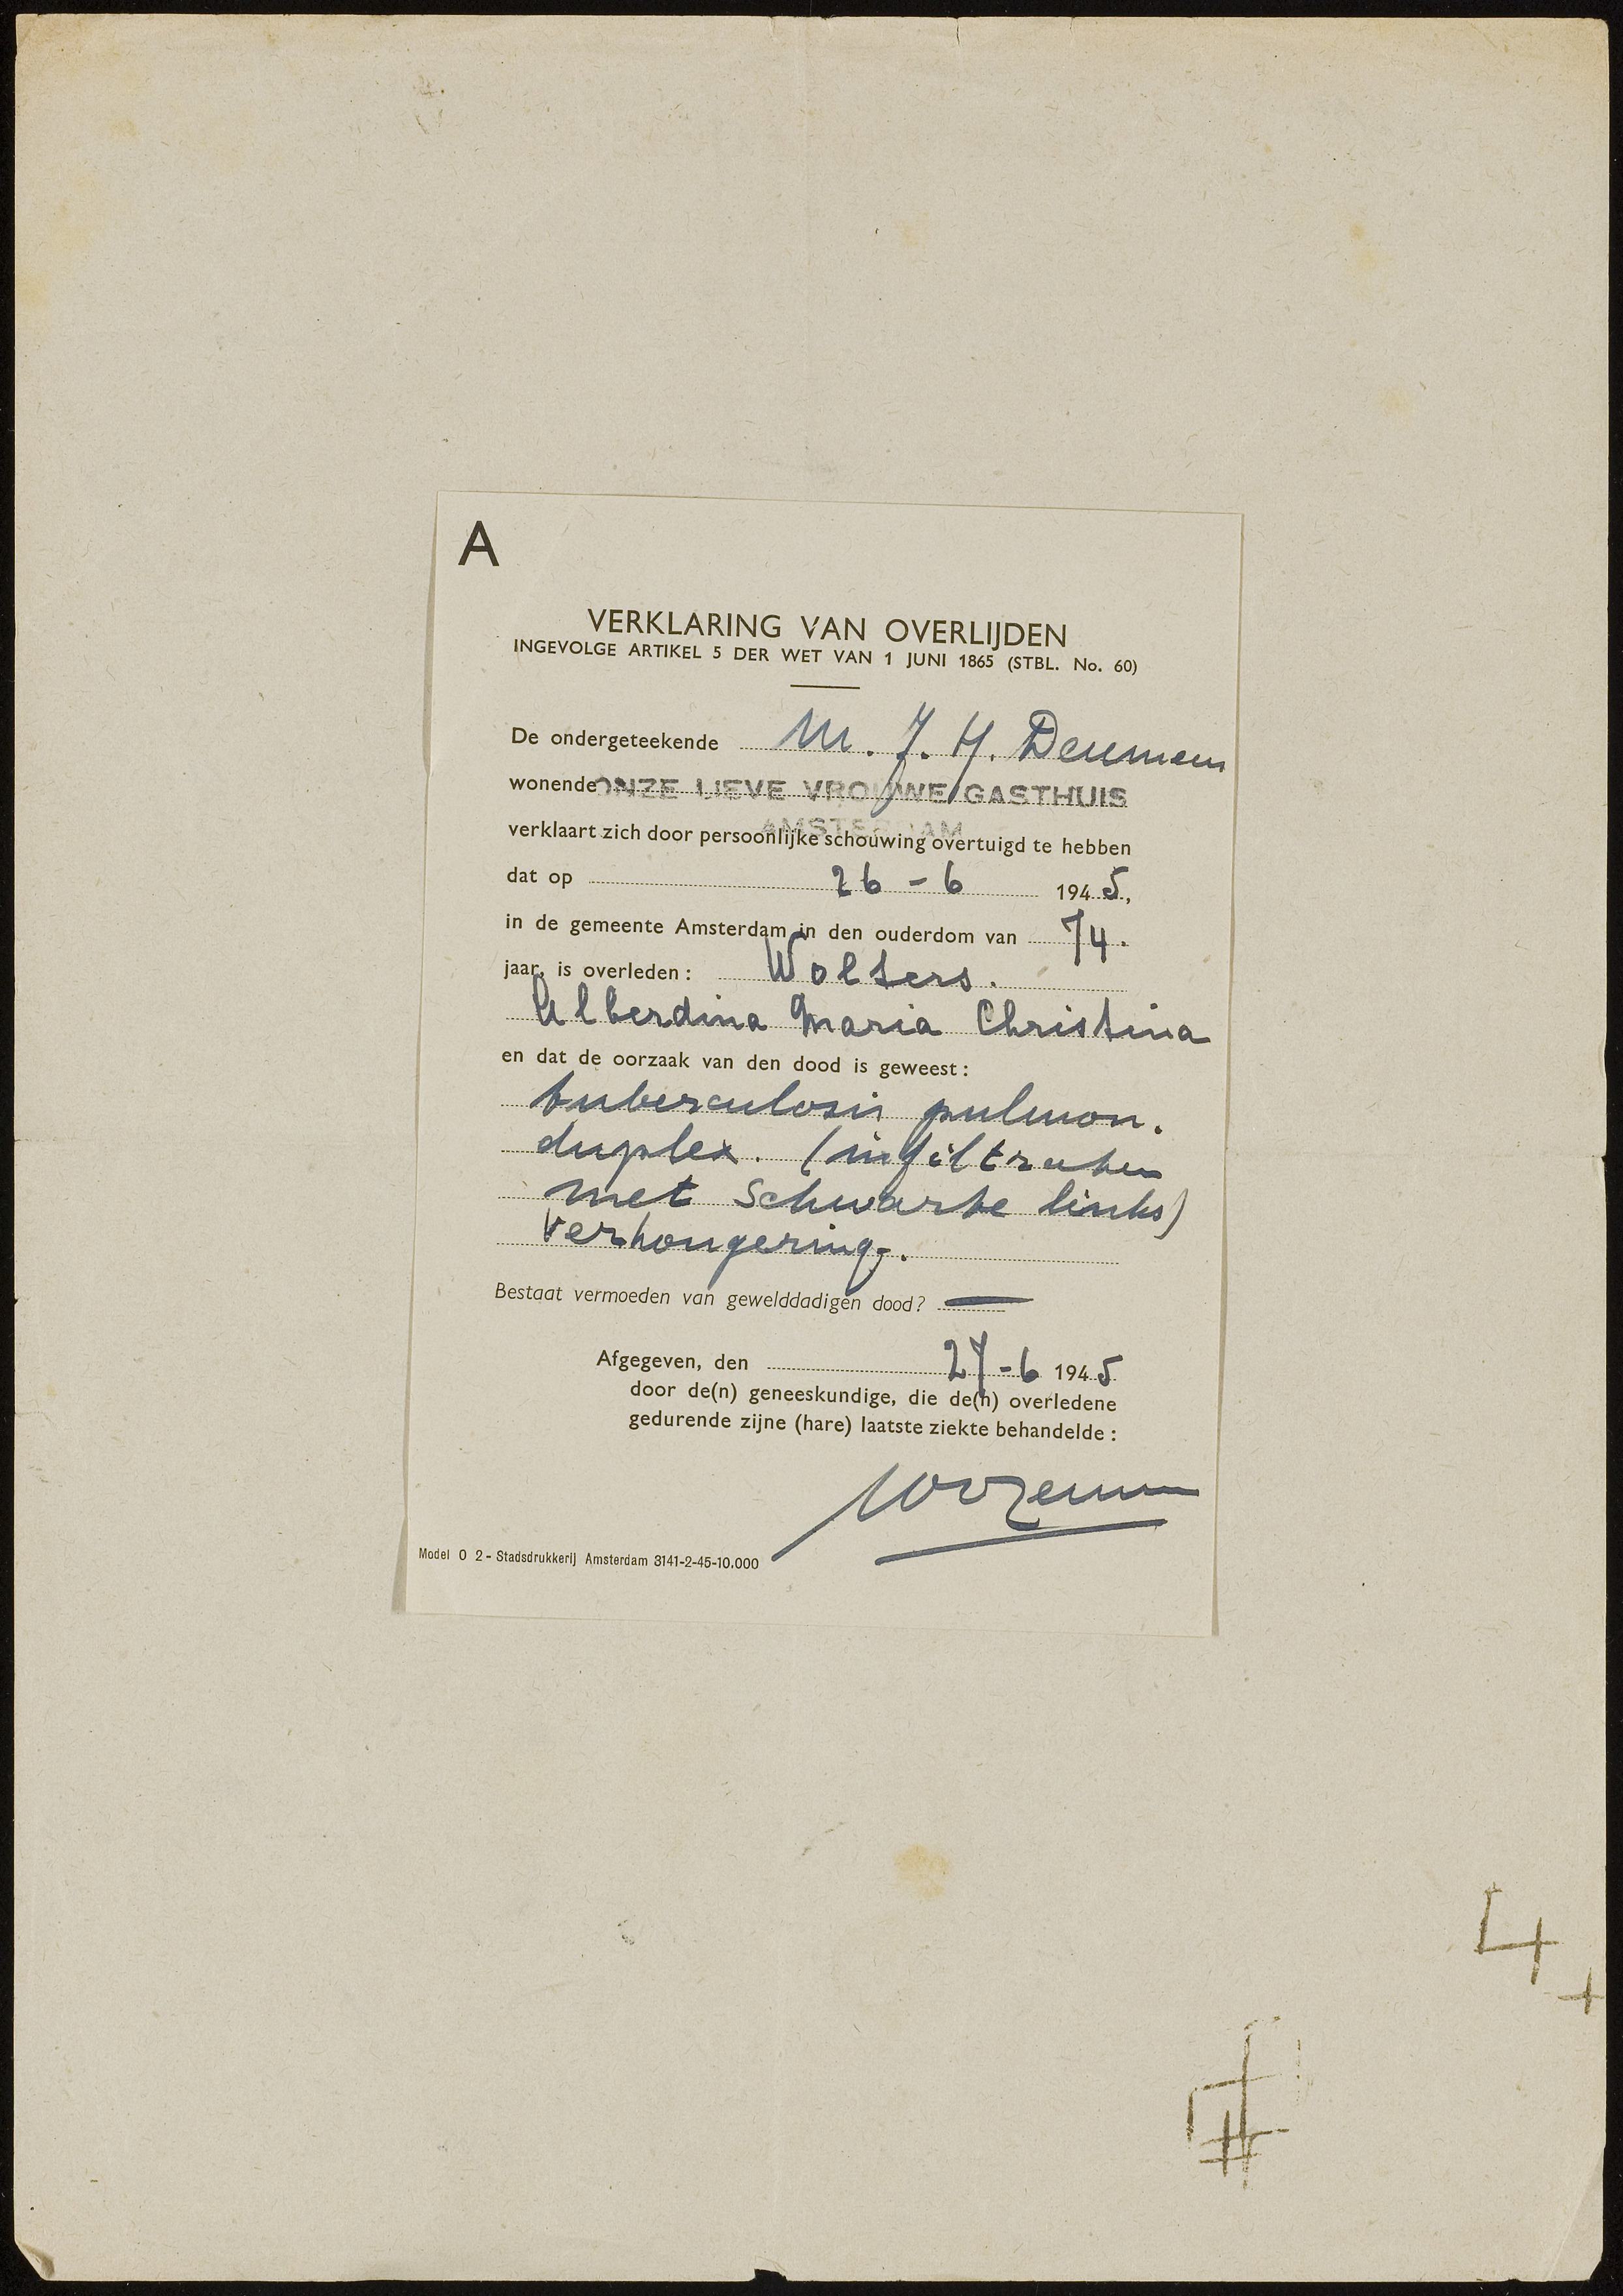 A
VERKLARING VAN OVERLIJDEN
INGEVOLGE ARTIKEL 5 DER WET VAN 1 JUNI 1865 (STBL. No. 60)
De ondergeteekende M. J. H.
wonende ONZE LIEVE VROUWE GASTHUIS
AMSTERDAM
verklaart zich door persoonlijke schouwing overtuigd te hebben
dat op 26 - 6 1945,
in de gemeente Amsterdam in den ouderdom van 74.
jaar, is overleden: Wolters.
Alberdina Maria Christina
en dat de oorzaak van den dood is geweest:
tuberculosis pulmon.
duplex. (infiltraten
met Schwarte links)
verhongering.
Bestaat vermoeden van gewelddadigen dood? —
Afgegeven, den 27-6 1945
door de(n) geneeskundige, die de(n) overledene
gedurende zijne (hare) laatste ziekte behandelde:
Model O 2 - Stadsdrukkerij Amsterdam 3141-2-45-10.000
4